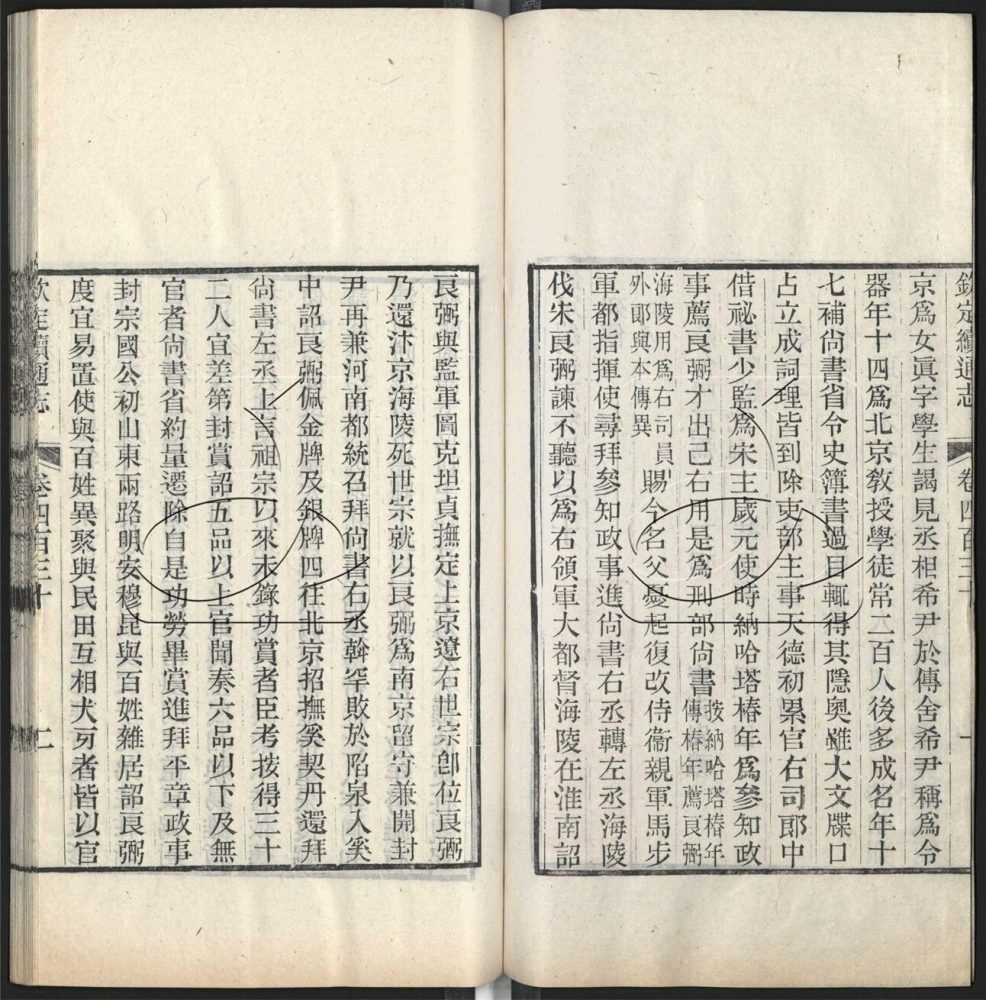 欽定續通志 卷四百三十 一
京爲女眞字學生謁見丞相希尹於傳舍希尹稱爲令
器年十四爲北京敎授學徒常二百人後多成名年十
七補尙書省令史簿書過目輒得其隱奧雖大文牒口
占立成詞理皆到除吏部主事天德初累官右司郎中
借祕書少監爲宋主歲元使時納哈塔椿年爲參知政
事薦良弼才出己右用是爲刑部尙書按納哈塔椿年
傳椿年薦良弼
海陵用爲右司員
外郎與本傳異賜今名父憂起復改侍衞親軍馬步
軍都指揮使尋拜參知政事進尙書右丞轉左丞海陵
伐宋良弼諫不聽以爲右領軍大都督海陵在淮南詔
良弼與監軍圖克坦貞撫定上京遼右世宗卽位良弼
乃還汴京海陵死世宗就以良弼爲南京留守兼開封
尹再兼河南都統召拜尙書右丞斡罕敗於陷泉入奚
中詔良弼佩金牌及銀牌四往北京招撫奚契丹還拜
尙書左丞上言祖宗以來未錄功賞者臣考按得三十
二人宜差第封賞詔五品以上官聞奏六品以下及無
官者尙書省約量遷除自是功勞畢賞進拜平章政事
封宗國公初山東兩路明安穆昆與百姓雜居詔良弼
度宜易置使與百姓異聚與民田互相犬牙者皆以官
欽定續通志 卷四百三十 二